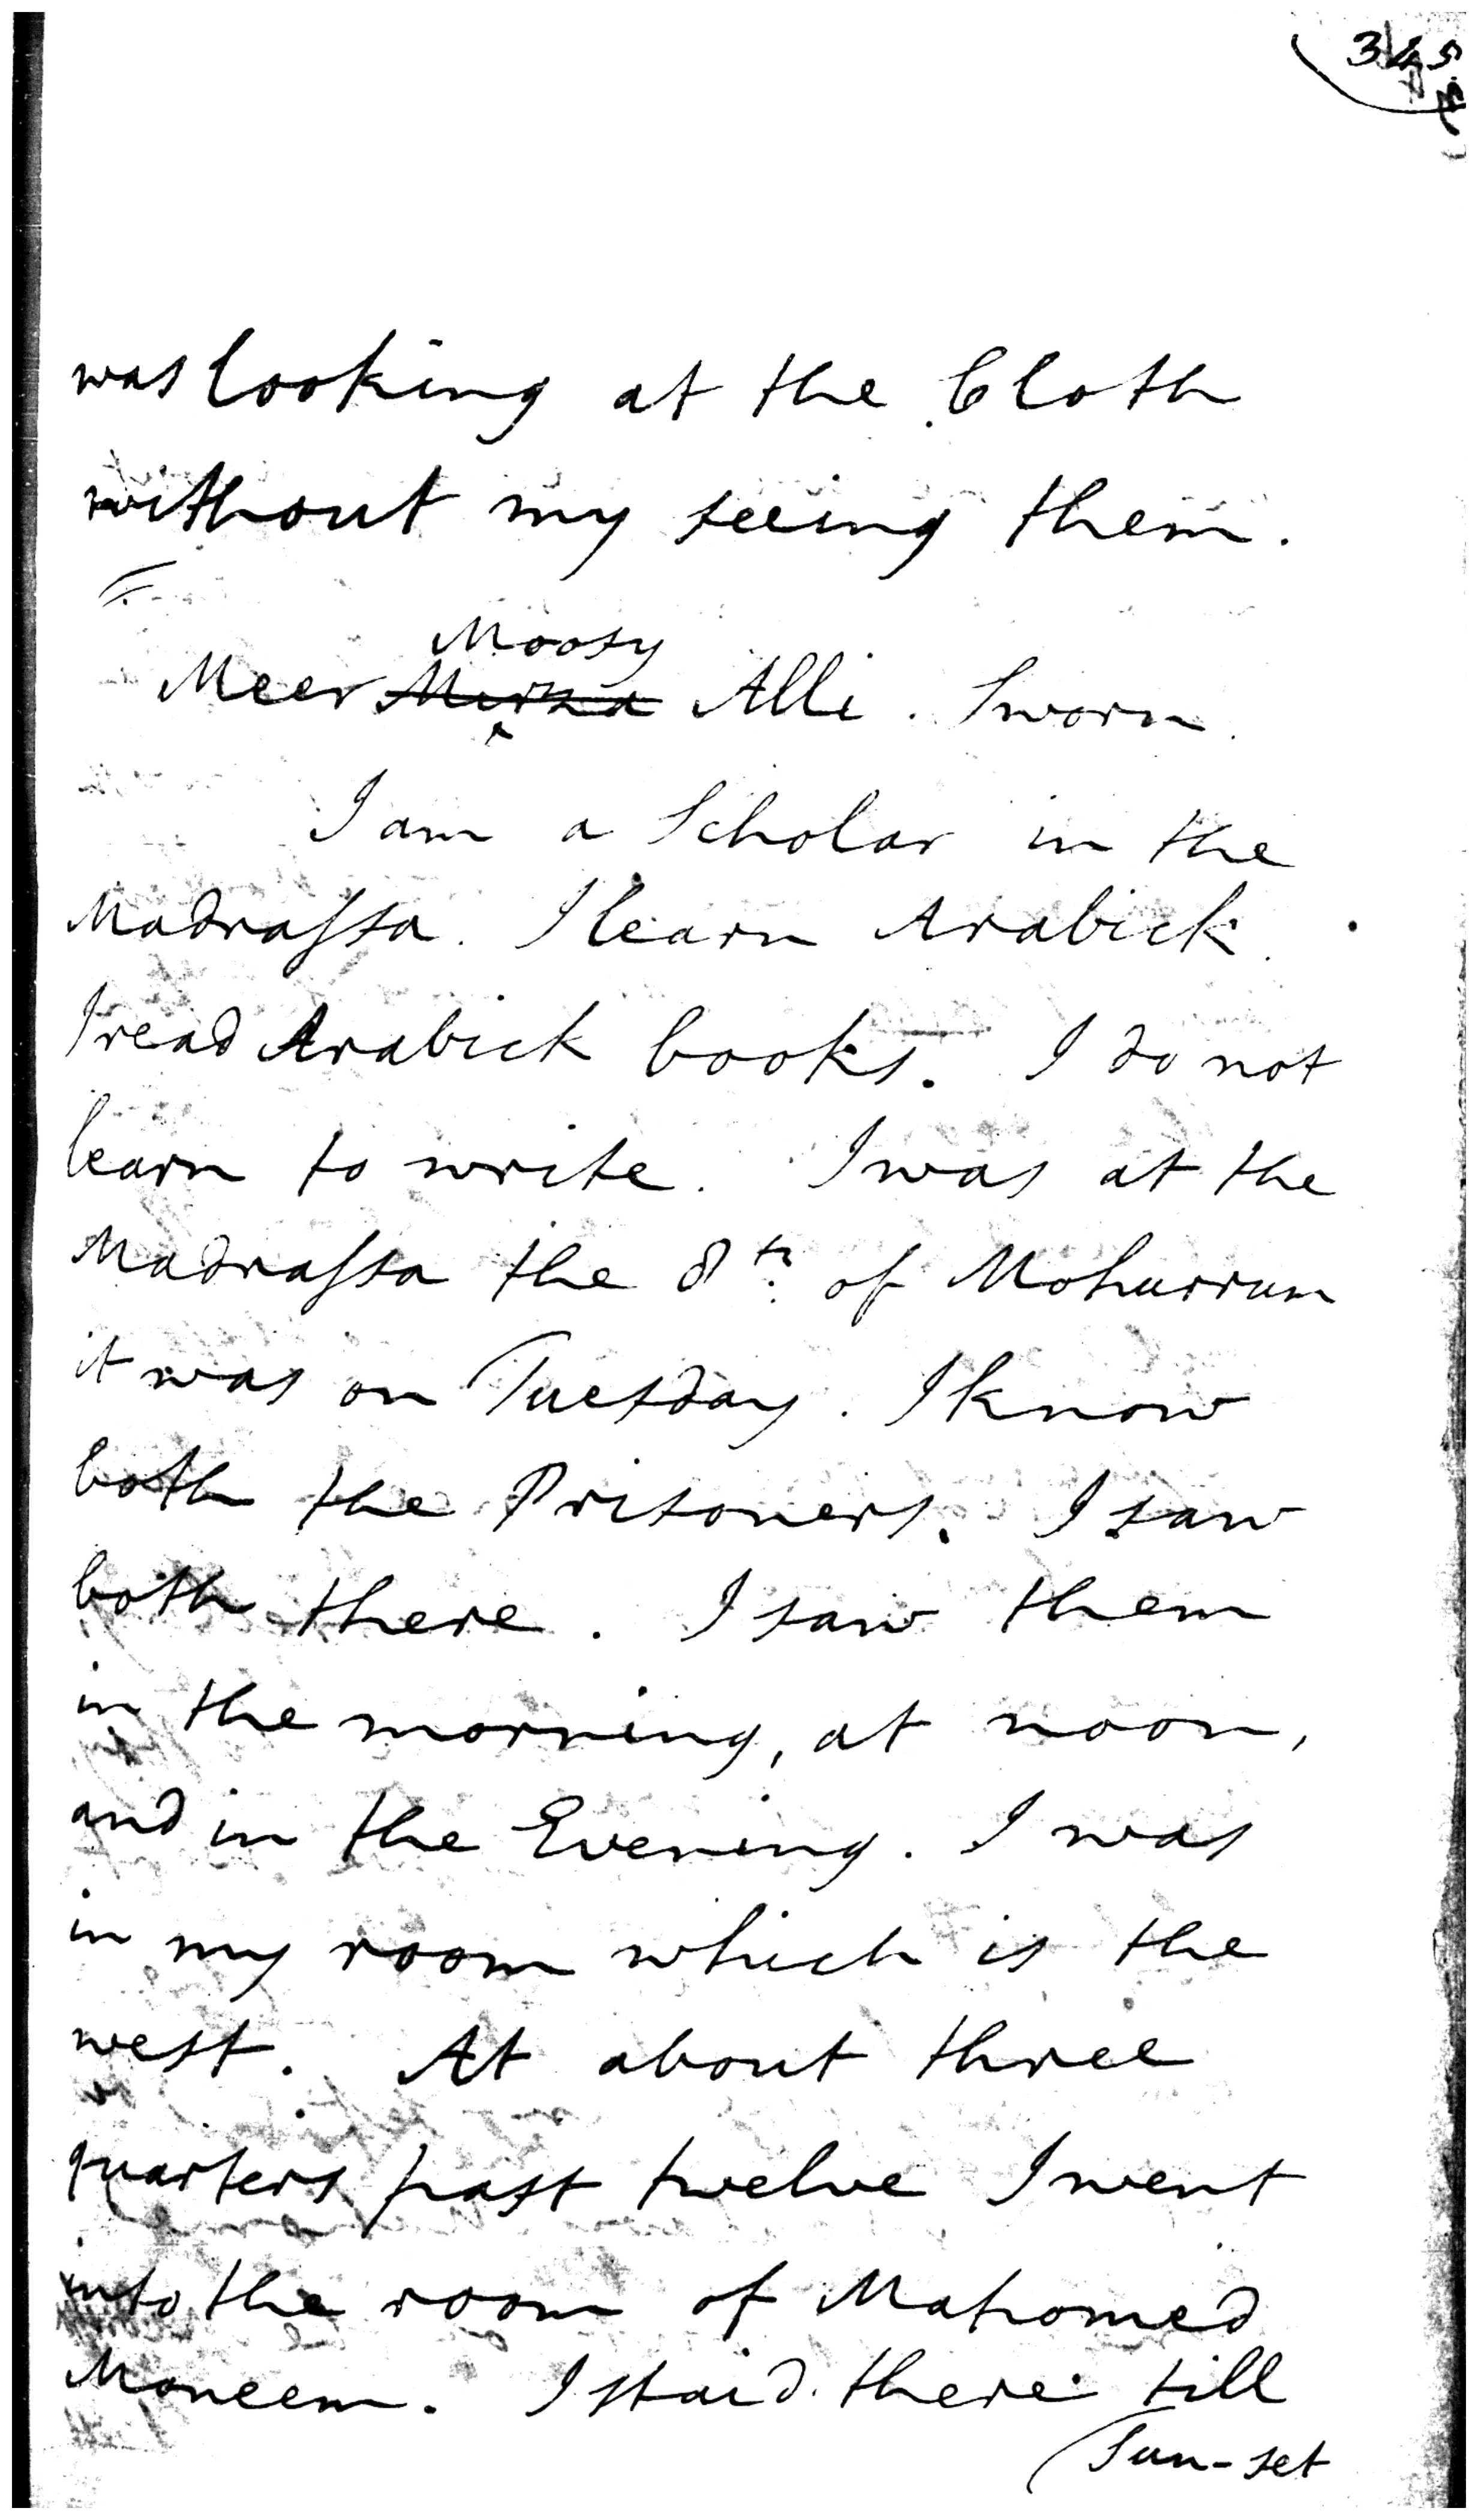 345
was looking at the Cloth
without my seeing them.
Moosy
Meer Mirza Alli. Sworn.
I am a Scholar in the
Madrassa. I learn Arabick.
I read Arabick books. I do not
learn to write. I was at the
Madrassa the 8th of Mohurrum
it was on Tuesday. I know
both the Prisoners. I saw
both there. I saw them
in the morning, at noon,
and in the Evening. I was
in my room which is the
west. At about three
quarters past twelve I went
into the room of Mahomed
Moneem. I staid there till
Sun-set